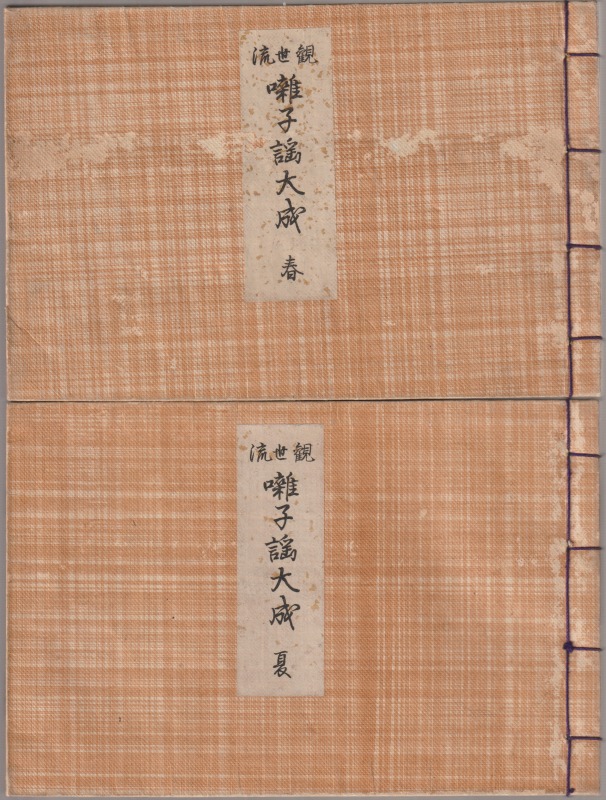 観世流
囃子謡大成 春
観世流
囃子謡大成 夏